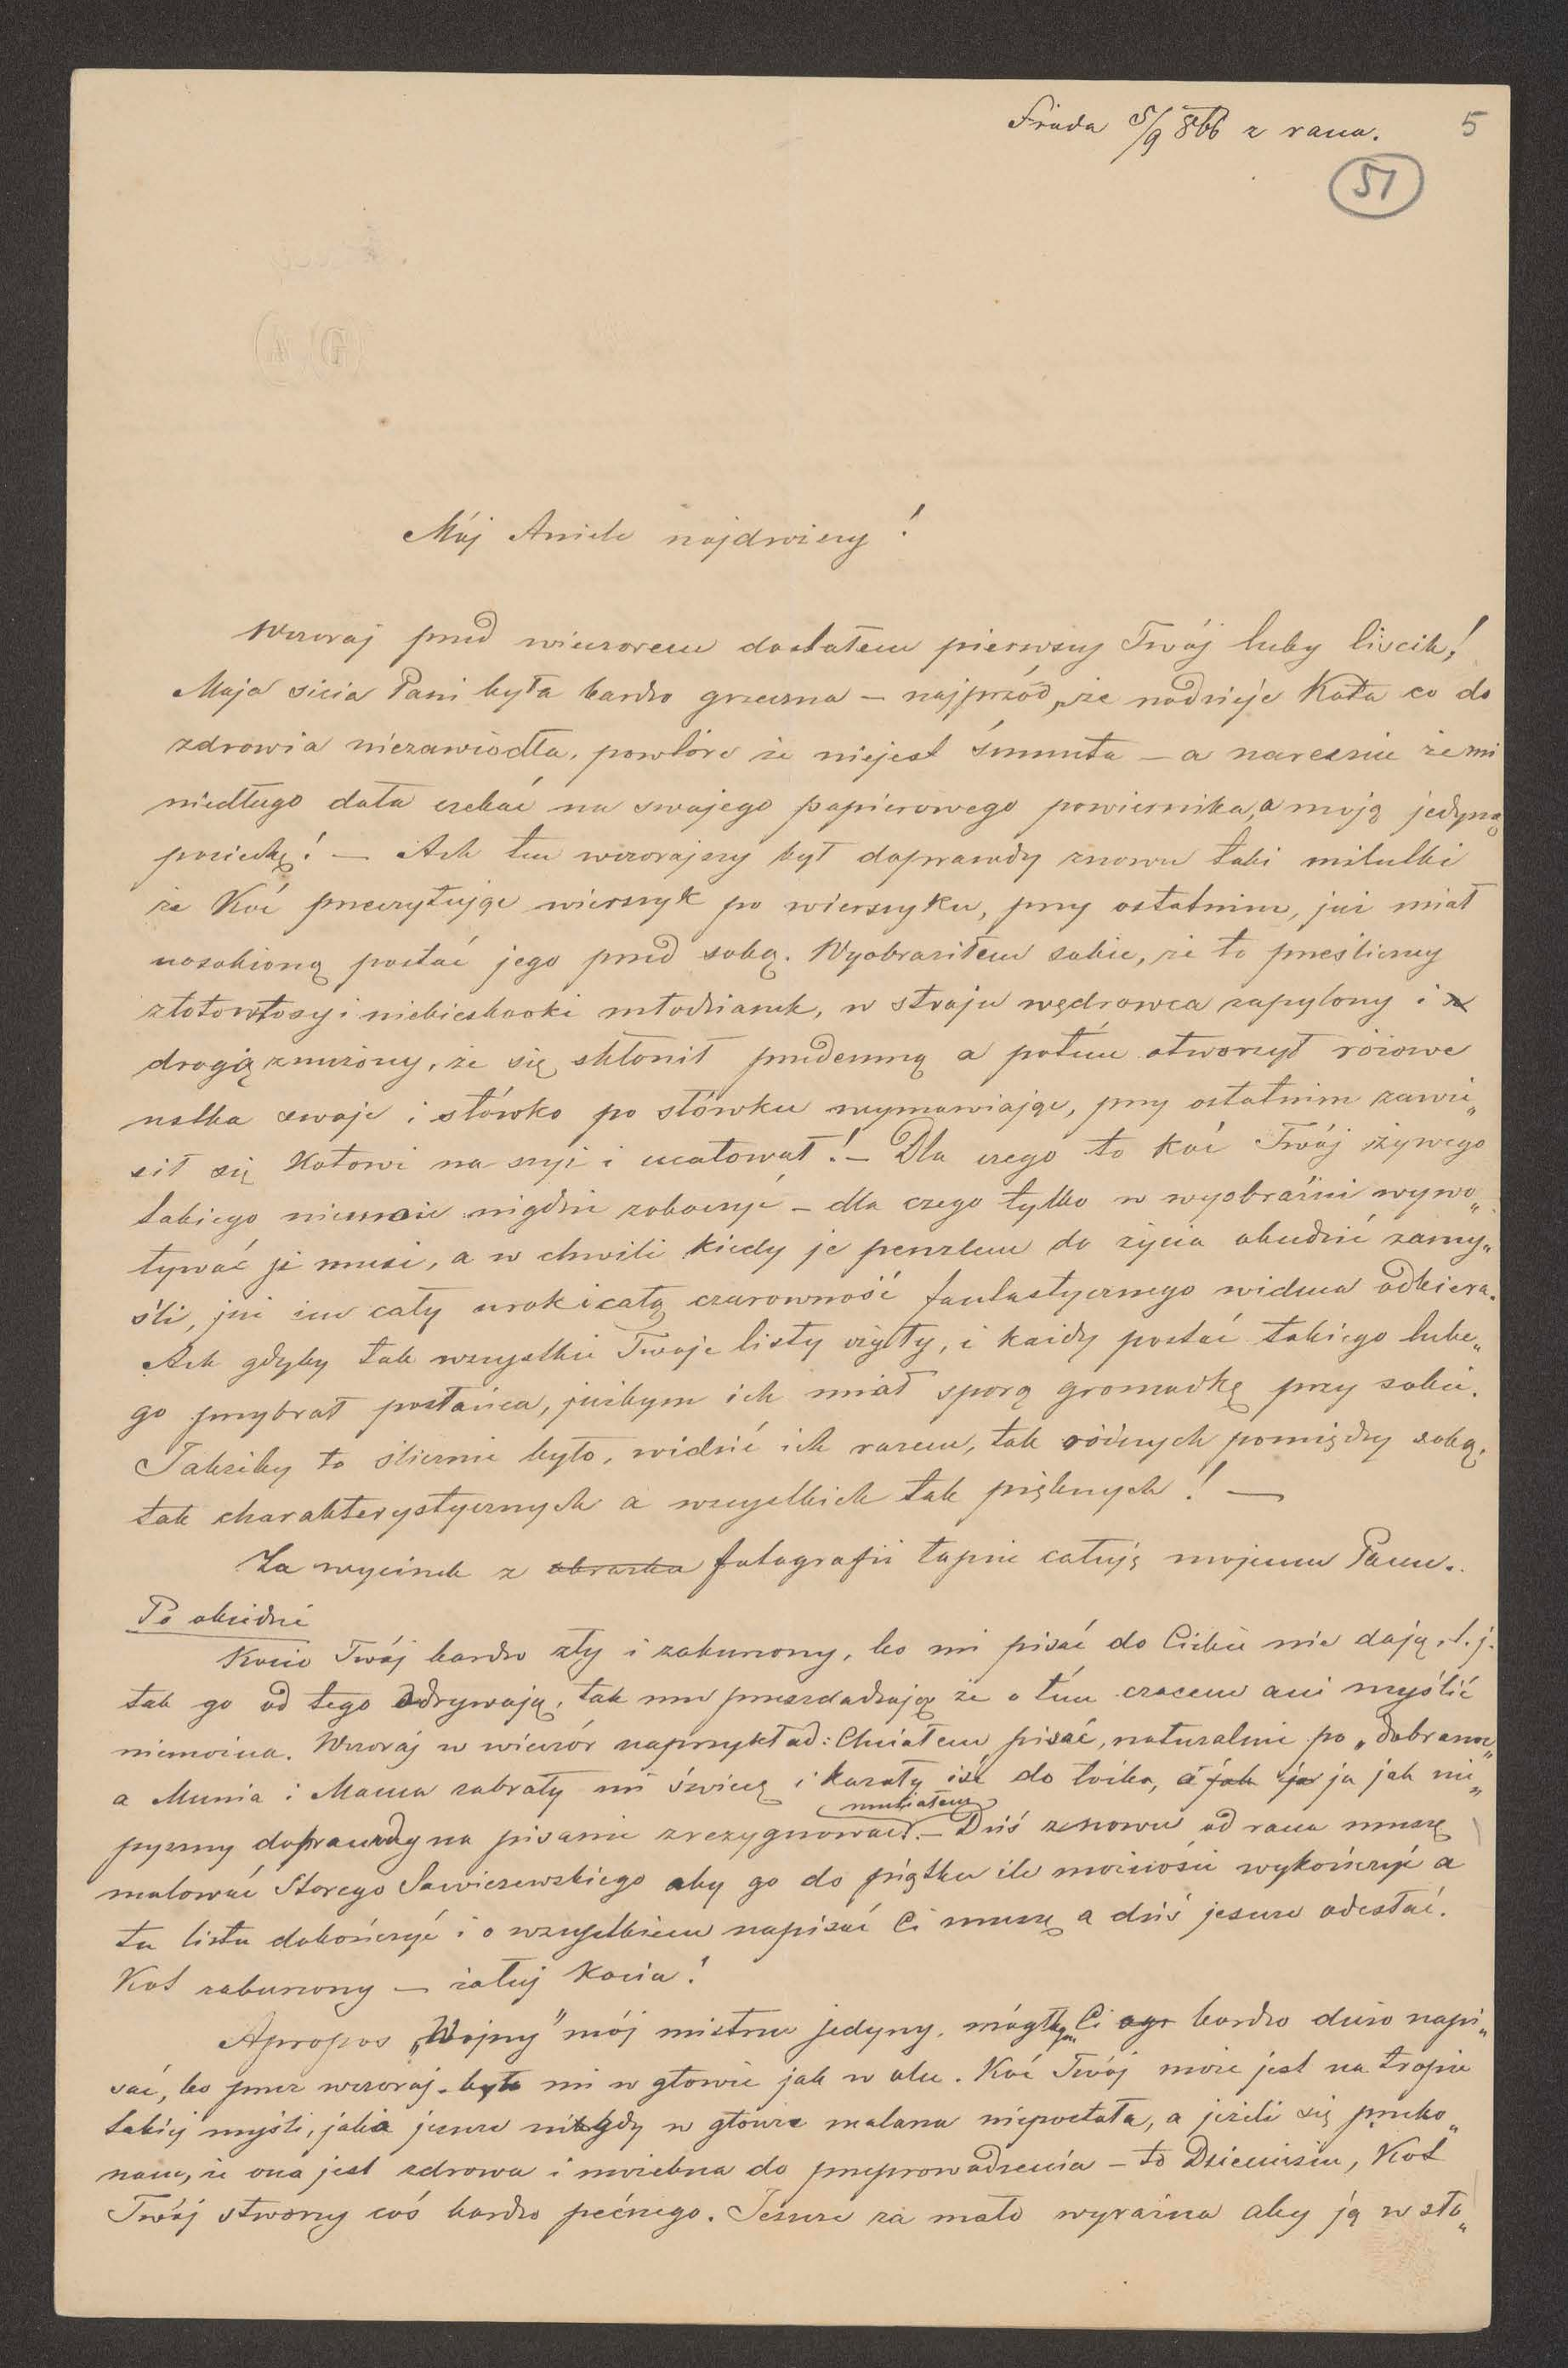 Środa 5/9 866 z rana. 5
51
Mój Aniele najdroższy!
Wczoraj przed wieczorem dostałem pierwszy Twój luby liścik!
Moja sicia Pani była bardzo grzeczna – najprzód, że nadzieje Kota co do
zdrowia niezawiodła, powtóre że niejest smutna – a nareszcie że mi
niedługo dała czekać na swojego papierowego powiernika, a moją jedyną
pociechę! – Ach ten wczorajszy był doprawdy znowu taki milutki
że Koć przeczytując wierszyk po wierszyku, przy ostatnim, już miał
uosobioną postać jego przed sobą. Wyobraziłem sobie, że to prześliczny
złotowłosy i niebieskooki młodzianek, w stroju wędrowca zapylony i
drogą znużony, że się skłonił przedemną a potém otworzył różowe
ustka swoje i słówko po słówku wymawiając, przy ostatnim zawie„
sił się Kotowi na szyi i ucałował! – Dla czego to koć Twój żywego
takiego niemoże nigdzie zobaczyć – dla czego tylko w wyobraźni wywo„
ływać je musi, a w chwili kiedy je penzlem do życia obudzić zamy„
śli, już im cały urok i całą czarowność fantastycznego widma odbiera.
Ach gdyby tak wszystkie Twoje listy ożyły, i każdy postać takiego lube„
go przybrał posłańca, jużbym ich miał sporą gromadkę przy sobie.
Jakżeby to ślicznie było, widzić ich razem, tak różnych pomiędzy sobą,
tak charakterystycznych a wszystkich tak pięknych! –
Za wycinek z obrazka fotografii łapcie całuję mojemu Panu.
Po obiedzie
Kocio Twój bardzo zły i zaburzony, bo mi pisać do Ciebie nie dają, t. j.
tak go od tego odrywają, tak mu przeszkadzają że o tém czasem ani myślić
niemożna. Wczoraj w wieczór naprzykład: Chciałem pisać, naturalnie po „dobranoc„
a Munia i Mama zabrały mi świcę i kazały iść do łóżka, a jak ja ja jak nie„
musiałem
pyszny doprawdy na pisanie zrezygnować. – Dziś znowu od rana muszę
malować Starego Sawiczewskiego aby go do piątku ile możności wykończyć a
tu listu dokończyć i o wszystkiem napisać Ci muszę a dziś jeszcze odesłać.
Kot zaburzony – żałuj Kocia!
Apropos „Wojny” mój mistrzu jedyny, mógłbym Ci bardzo dużo napi„
sać, bo przez wczoraj było mi w głowie jak w ulu. Koć Twój może jest na tropie
takiej myśli, jaka jeszcze nigdy w głowie malarza niepostała, a jeżeli się przeko„
nam, że ona jest zdrowa i możebna do przeprowadzenia – to Dzieciusiu, Kot
Twój stworzy coś bardzo pęcnego. Jeszcze za mało wyraźna aby ją w sło„